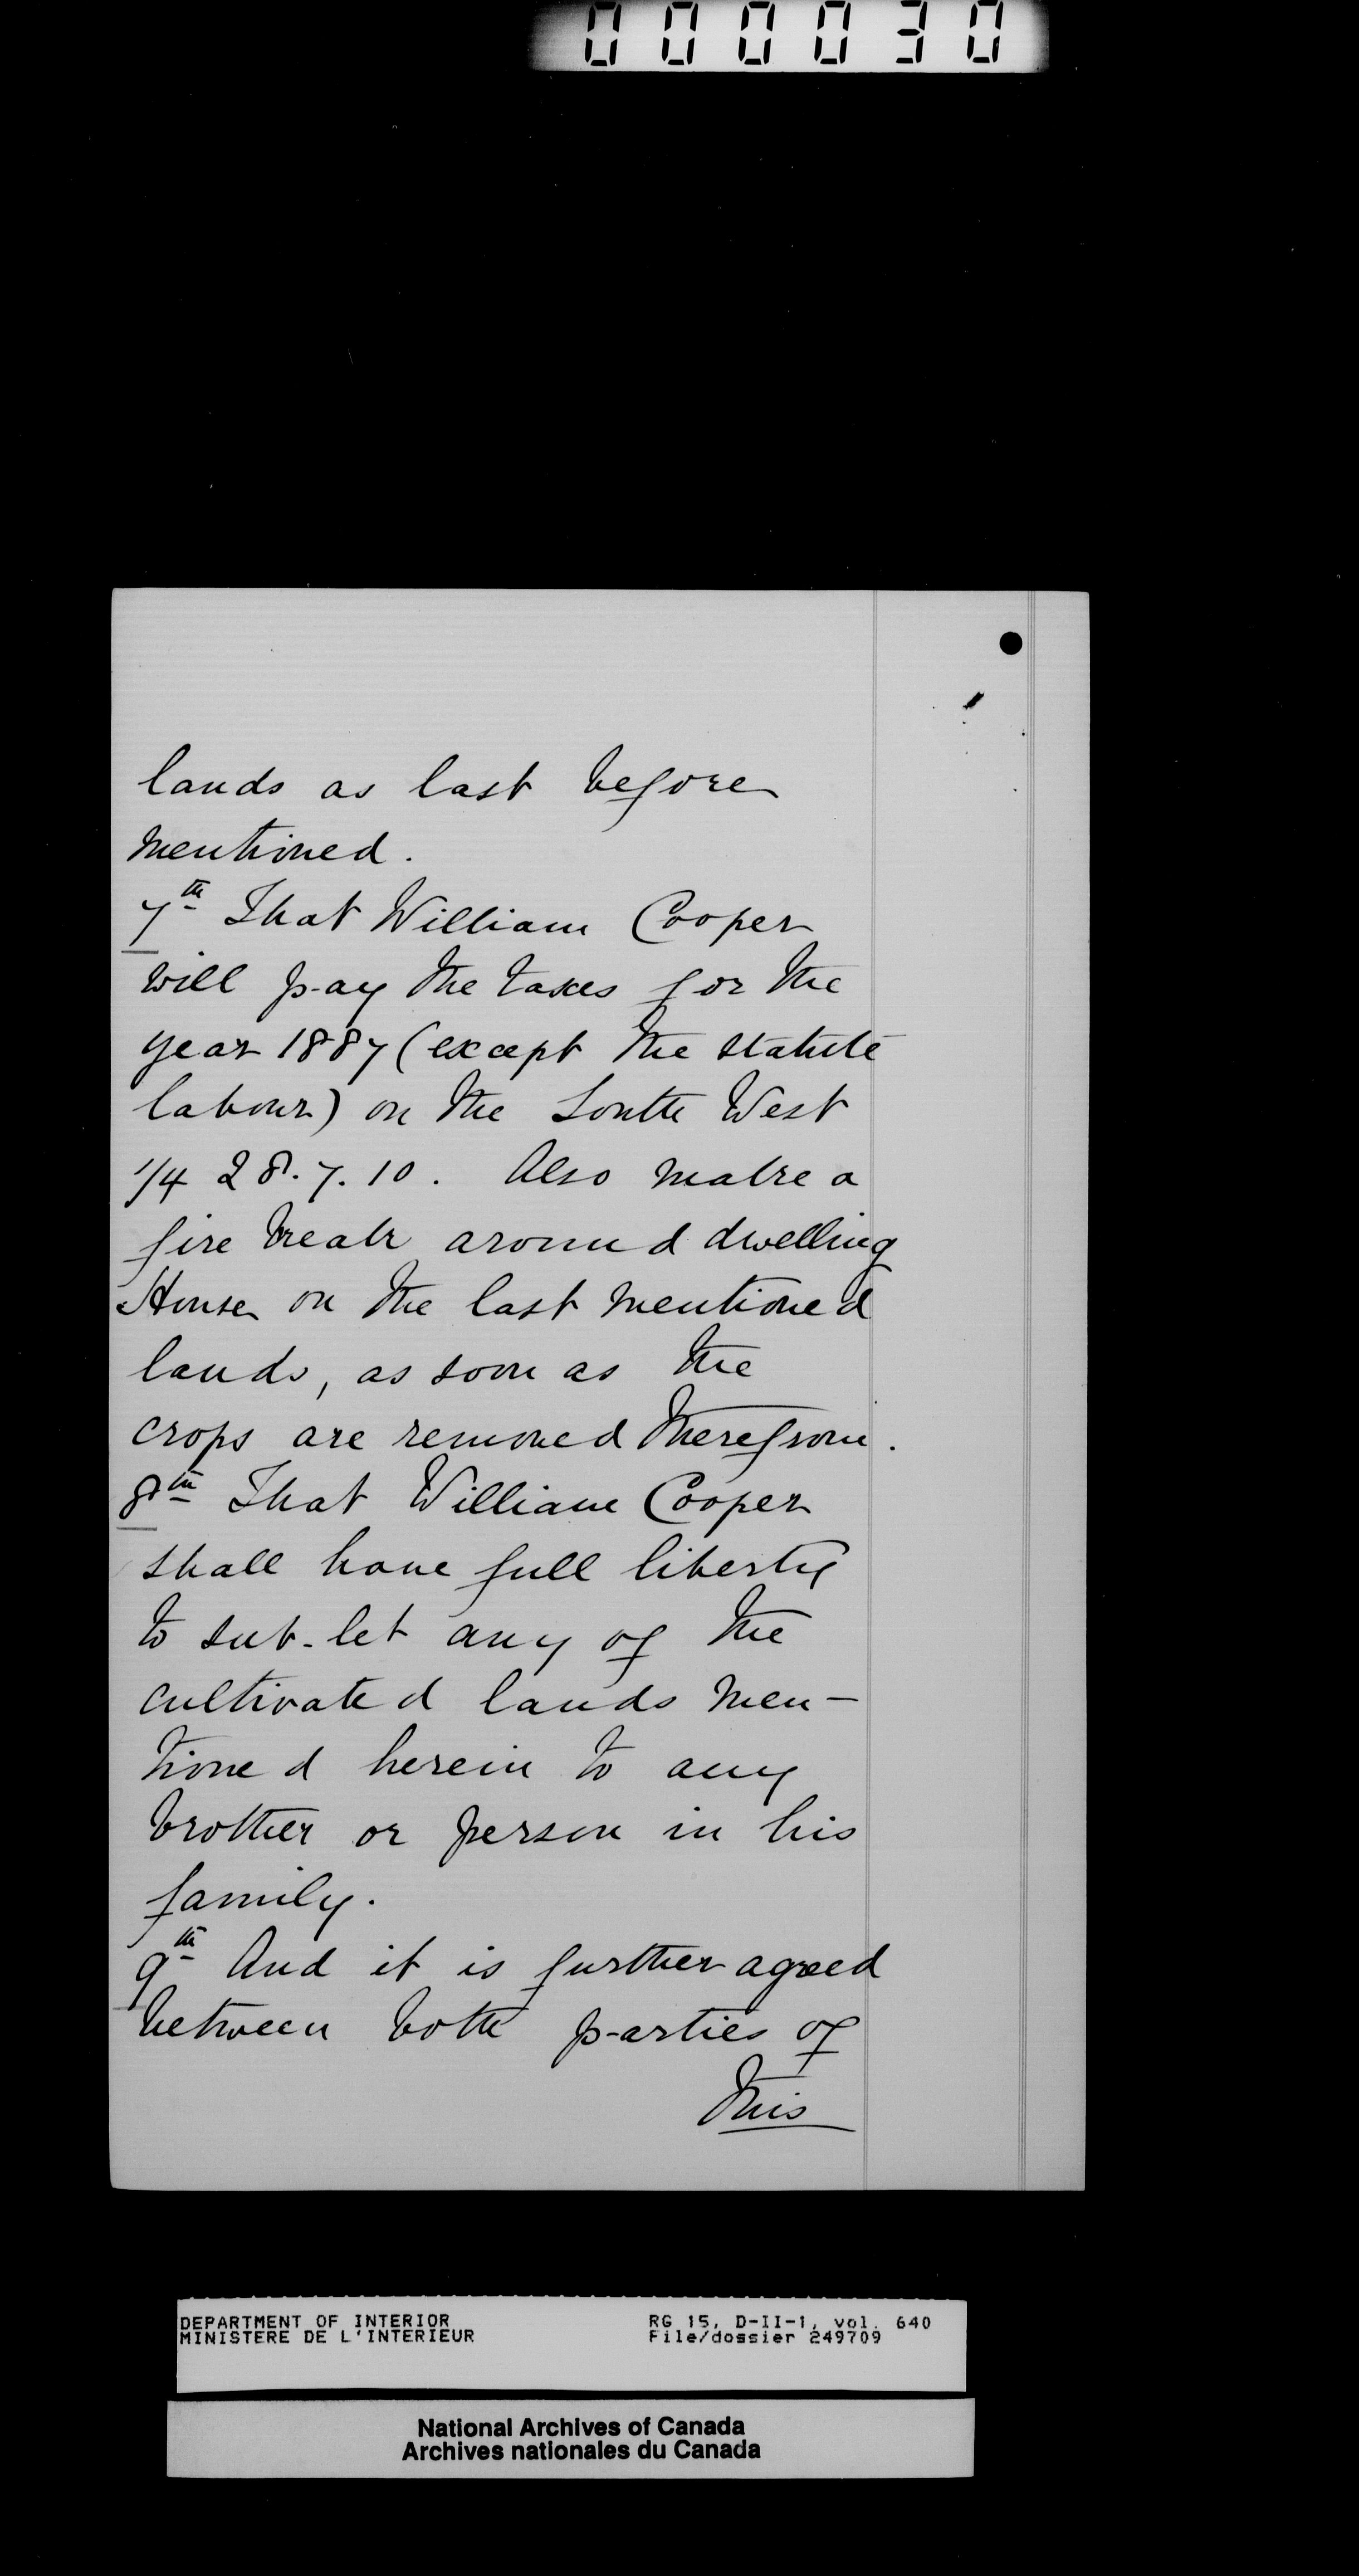 000030
lands as last before
mentioned.
7th That William Cooper
will pay the taxes for the
year 1887 (except the statute
labour) on the South West
1/4 28.7.10. Also make a
fire break around dwelling
House on the last mentioned
lands, as soon as the
crops are removed therefrom.
8th That William Cooper
shall have full liberty
to sub-let any of the
cultivated lands men-
tioned herein to any
brother or person in his
family.
9th And it is further agreed
between both parties of
this
DEPARTMENT OF INTERIOR RG 15, D-II-1, vol. 640
MINISTERE DE L'INTERIEUR File/dossier 249709
National Archives of Canada
Archives nationales du Canada